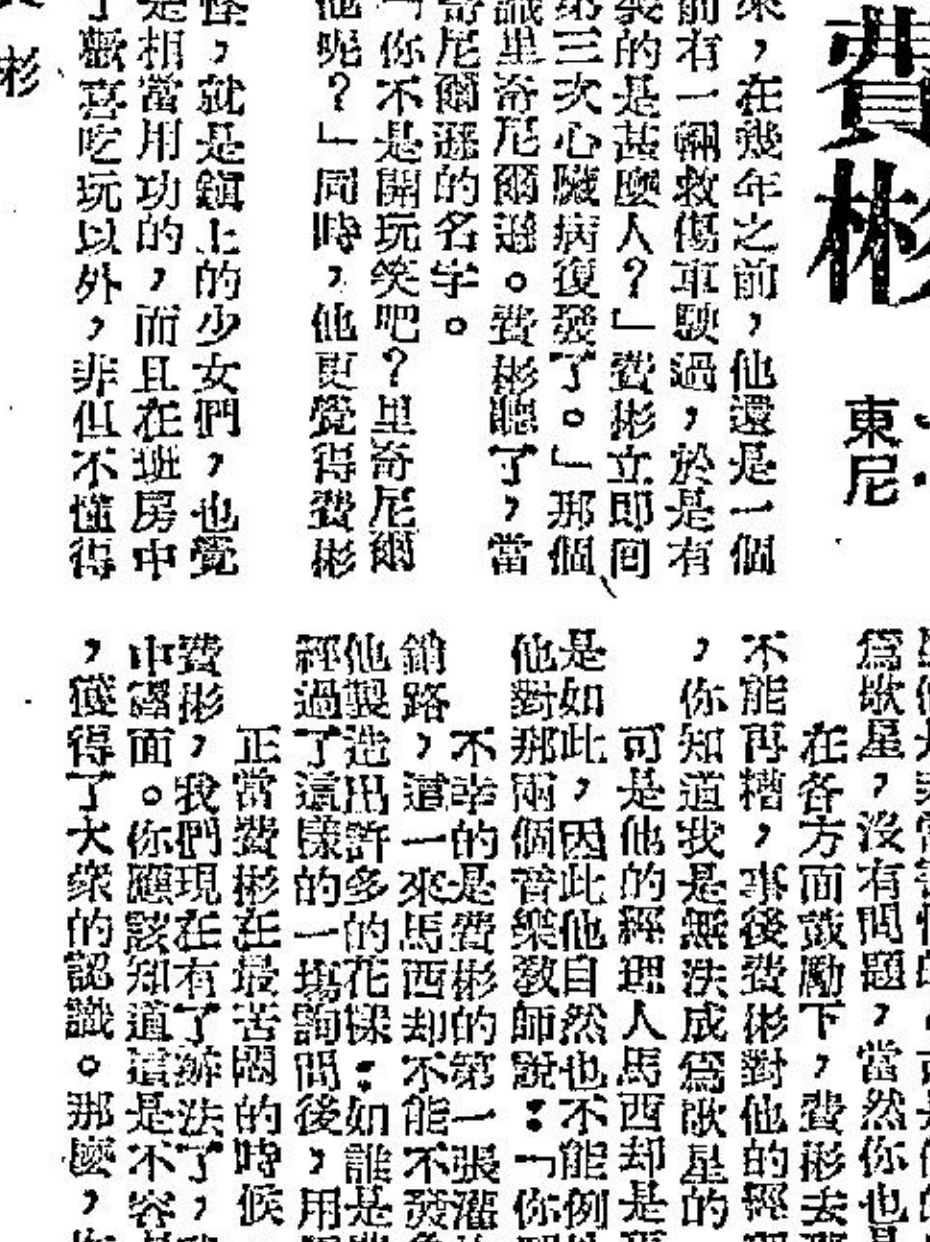 費彬
東尼
來，在幾年之前，他還是一個
前有一輛救傷車駛過，於是有
裝的是甚麼人？」費彬立即囘
第三次心臟病復發了。」那個
識里奇尼爾遜。費彬聽了，當
奇尼爾遜的名字。
「你不是開玩笑吧？里奇尼爾
他呢？」同時，他更覺得費彬
怪，就是鎮上的少女們，也覺
是相當用功的，而且在班房中
了歡喜吃玩以外，非但不懂得
彬
爲歌星，沒有問題，當然你也
在各方面鼓勵下，費彬去
不能再糟，事後費彬對他的經
，你知道我是無法成爲歌星的
可是他的經理人馬西却是
是如此，因此他自然也不能例
他對那兩個音樂敎師說：「你
不幸的是費彬的第一張灌
銷路，這一來馬西却不能不發
他製造出許多的花樣：如誰是
經過了這樣的一塲詢問後，用
正當費彬在最苦悶的時候
費彬，我們現在有了辦法了，
中露面。你應該知道這是不容
，獲得了大衆的認識。那麼，